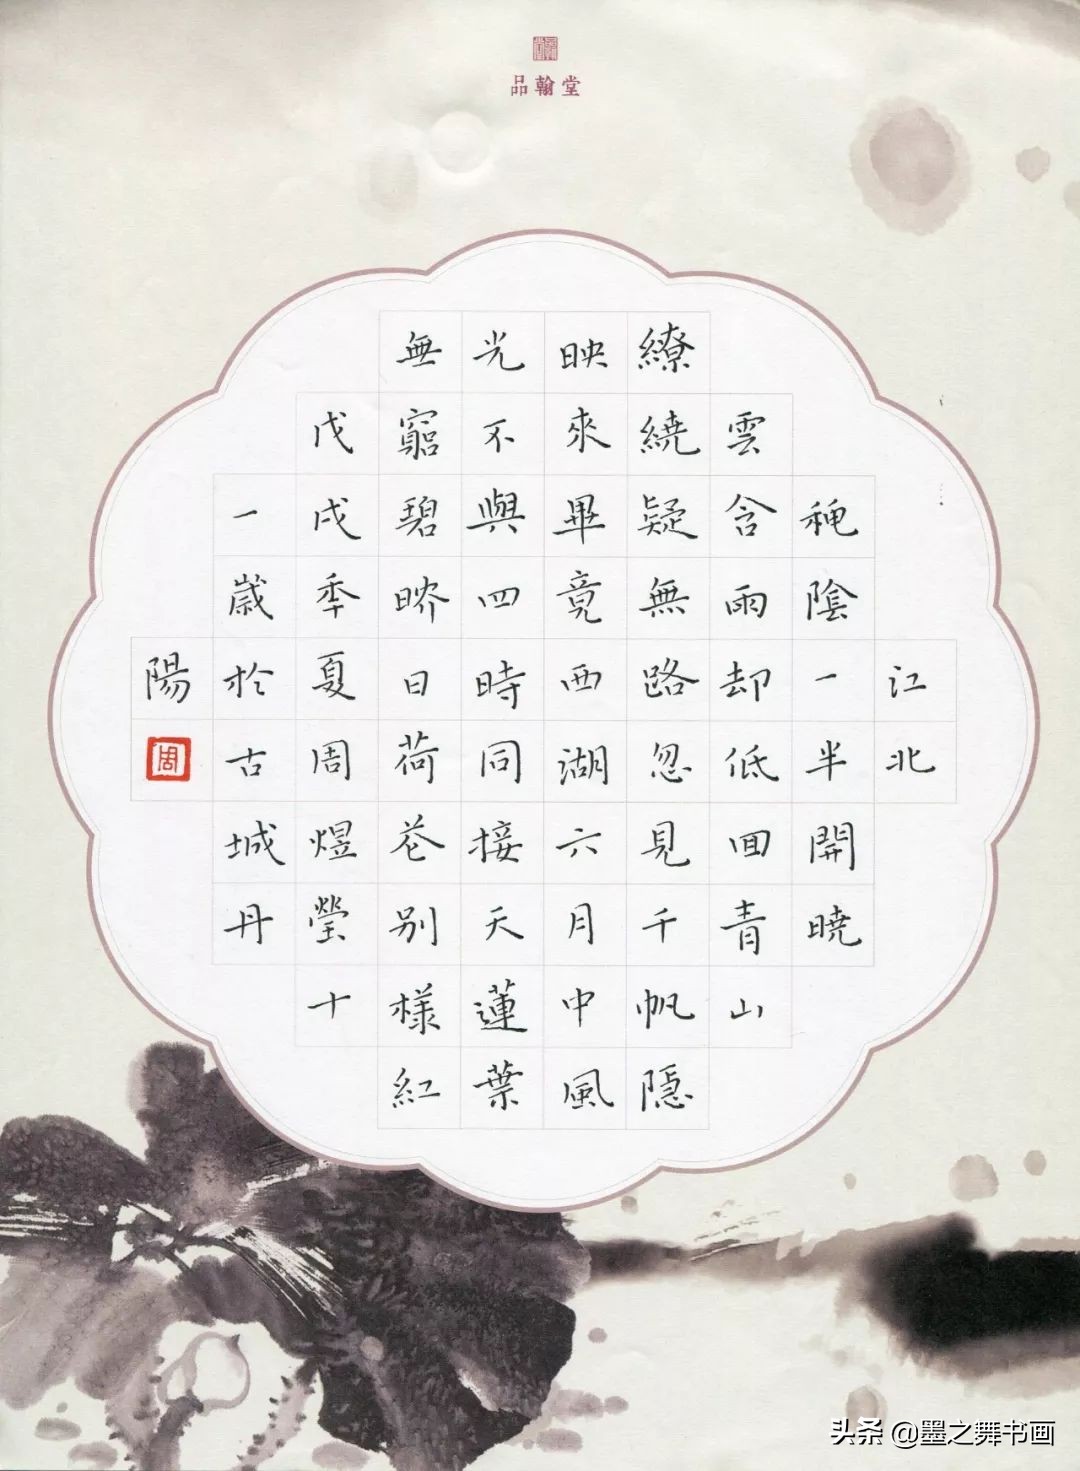 品翰堂
江北
穐陰一半開曉
雲含雨却低囬青山
繚繞疑無路忽見千帆隱
映來畢竟西湖六月中風
光不與四時同接天蓮葉
無窮碧暎日荷花別樣紅
戊戌季夏周煜瑩十
一歲於古城丹
陽
周
头条 @墨之舞书画